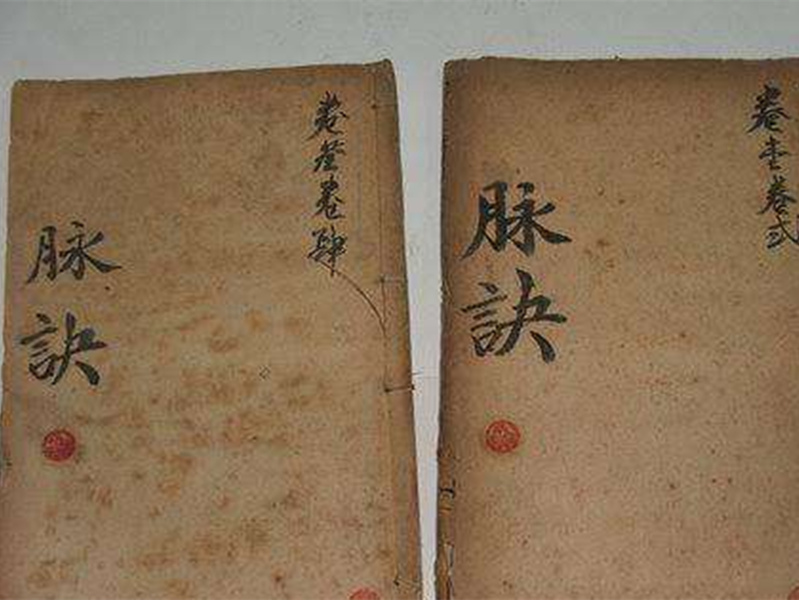 卷叁卷肆
脉訣
卷壹卷弍
脉訣